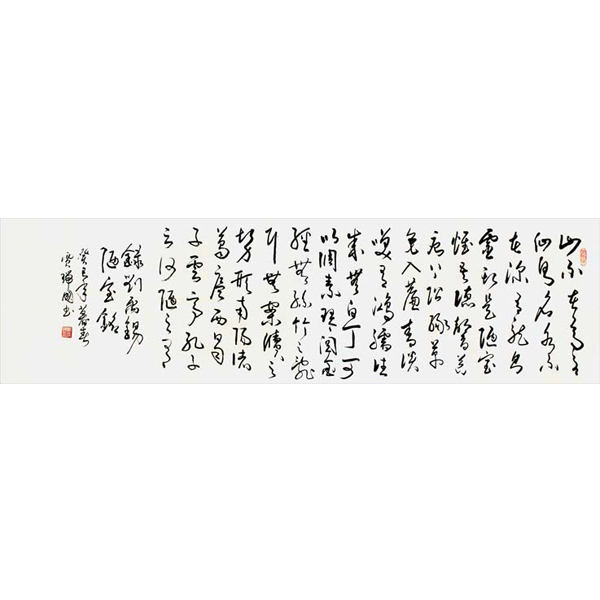 山不在高有
仙則名水不
在深有龍則
靈斯是陋室
惟吾德馨苔
痕上階綠草
色入簾青談
笑有鴻儒往
來無白丁可
以調素琴閱金
經無絲竹之亂
耳無案牘之
勞形南陽諸
葛廬西蜀
子雲亭孔子
云何陋之有
錄劉禹錫
陋室銘
癸巳年暮春
國書